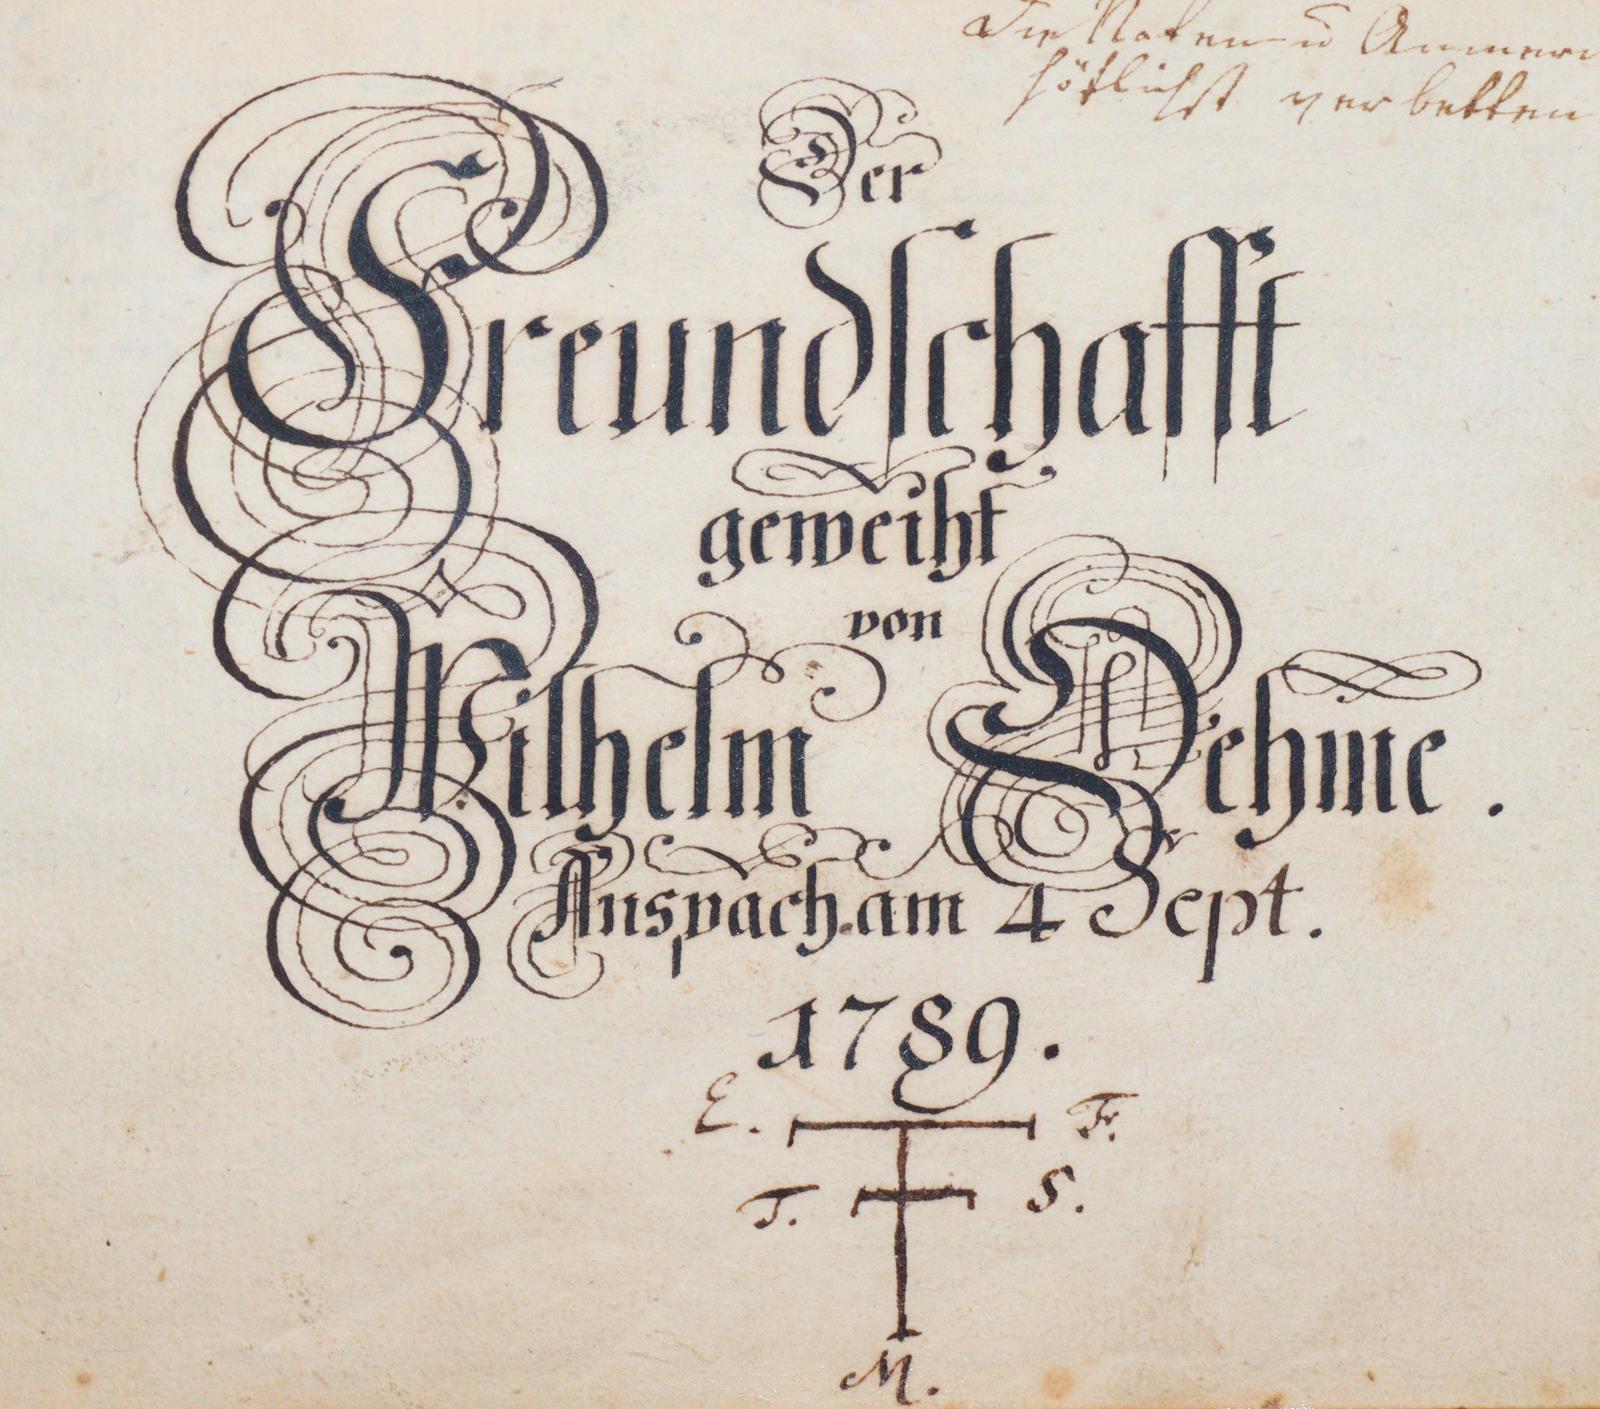 Die Noten ū Anmer
höflichst verbetten
Der
Freundschafft
geweiht
von
Wilhelm Dehme.
Anspach am 4 Sept.
1789.
E. F.
T. S.
M.